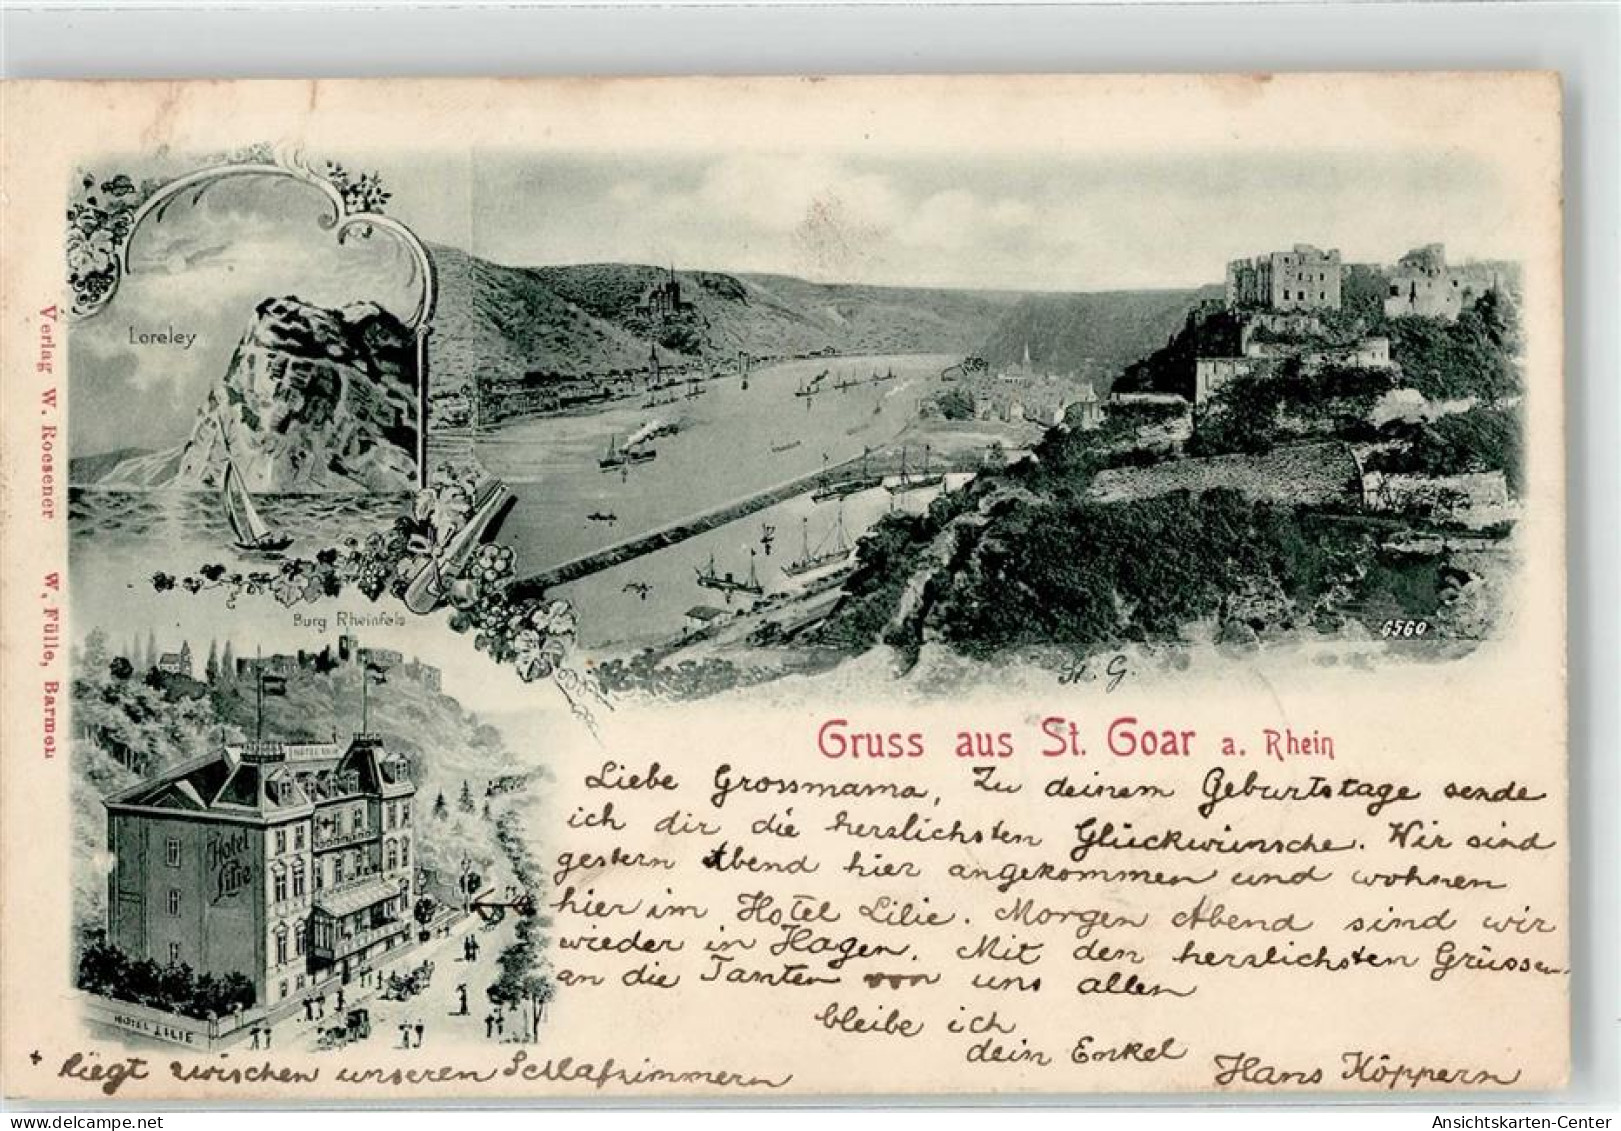 Verlag W. Roesener W. Fülle, Barmen
Loreley
Burg Rheinfels
6560
St. G.
Gruss aus St. Goar a. Rhein
Liebe Grossmama, Zu deinem Geburtstage sende
ich dir die herzlichsten Glückwünsche. Wir sind
gestern Abend hier angekommen und wohnen
hier im Hotel Lilie. Morgen Abend sind wir
wieder in Hagen. Mit den herzlichsten Grüssen
an die Tanten von uns allen
bleibe ich
dein Enkel
Hans Köppern
+ liegt zwischen unseren Schlafzimmern
Hotel
Lilie
HOTEL LILIE
Ansichtskarten-Center